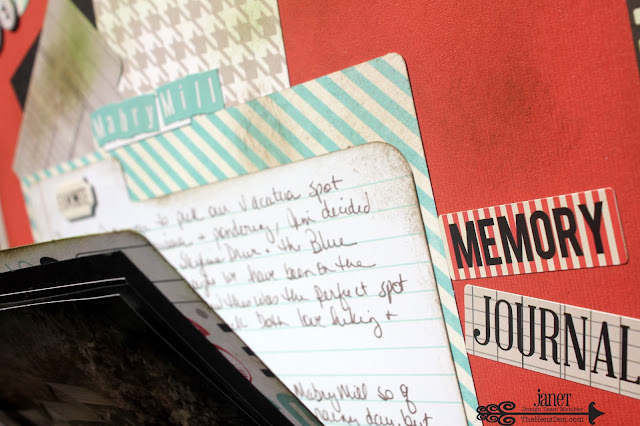 Mabry Mill
to pick our vacation spot
+ pondering, Jim decided
Skyline Drive + the Blue
we have been on the
this was the perfect spot
both love hiking +
Mabry Mill so of
day, but
MEMORY
JOURNAL
janet
Design Team Member
TheHensDen.com